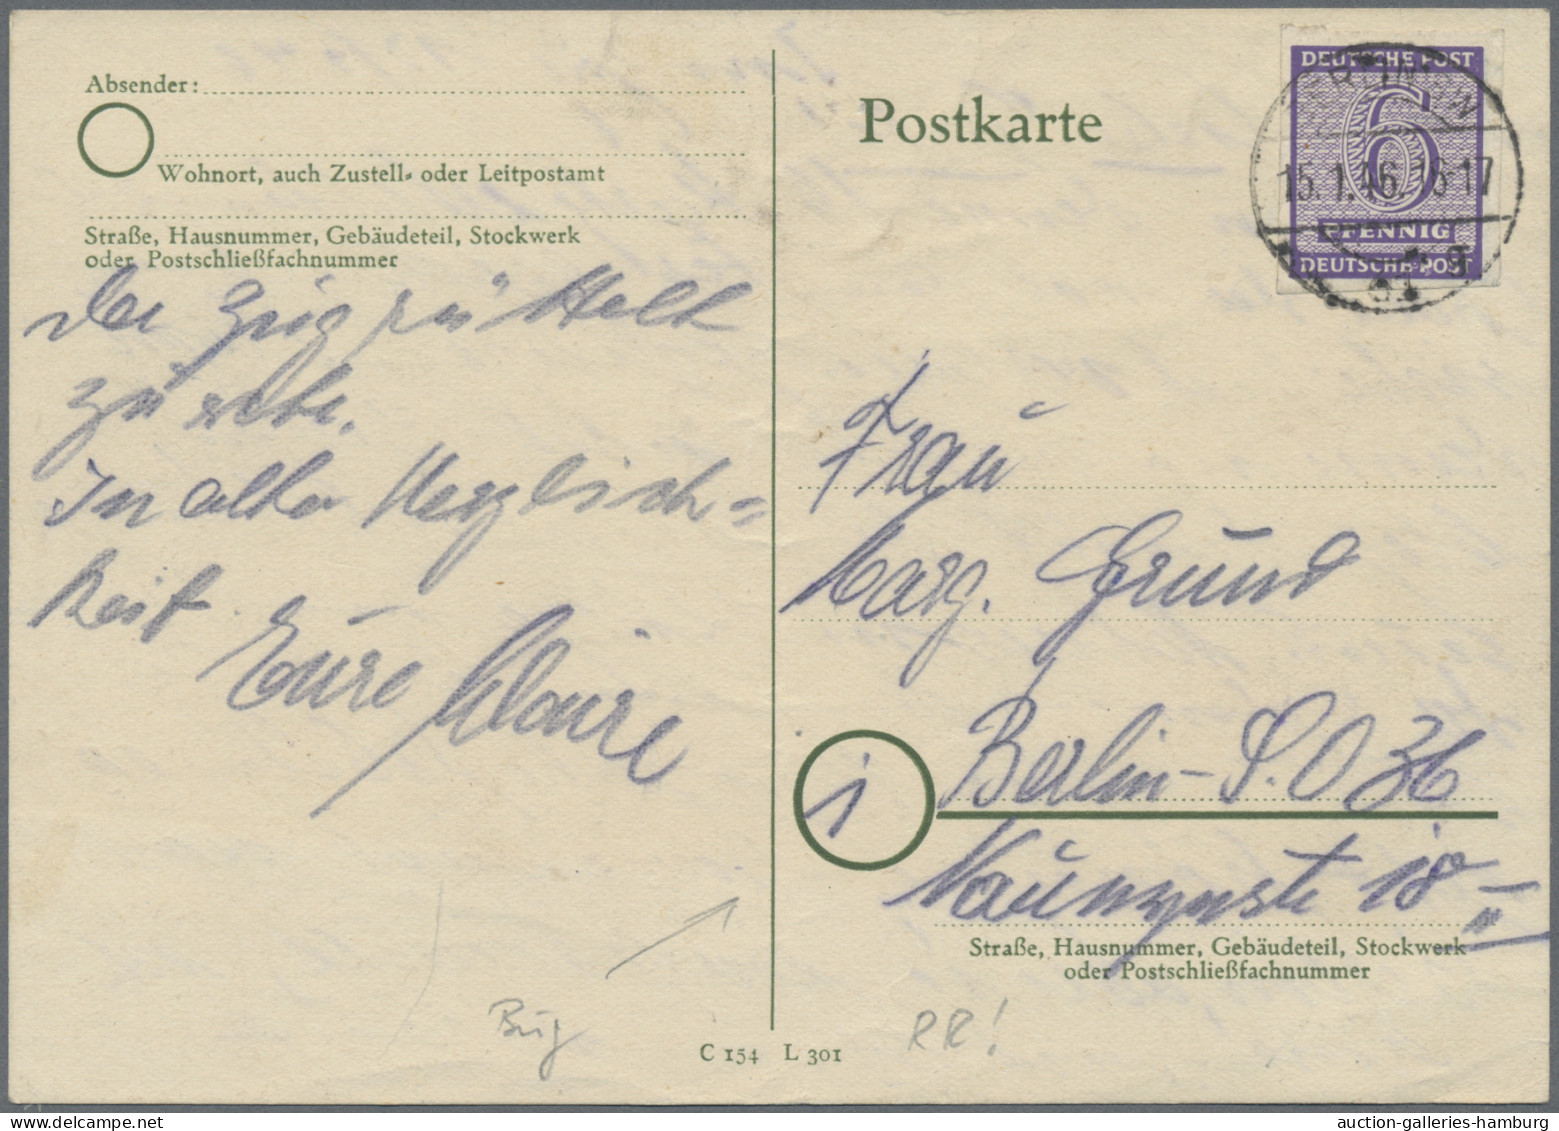 Absender:
Wohnort, auch Zustell- oder Leitpostamt
Straße, Hausnummer, Gebäudeteil, Stockwerk
oder Postschließfachnummer
zu
In alter Herzlich=
keit
Eure Claire
Bug
C 154 L 301
Postkarte
DEUTSCHE POST
6
PFENNIG
DEUTSCHE POST
15.1.46.16-17
Frau
Marg. Grund
Berlin - S.O 36
Naunynstr 10 II
Straße, Hausnummer, Gebäudeteil, Stockwerk
oder Postschließfachnummer
RR!
auction-galleries-hamburg